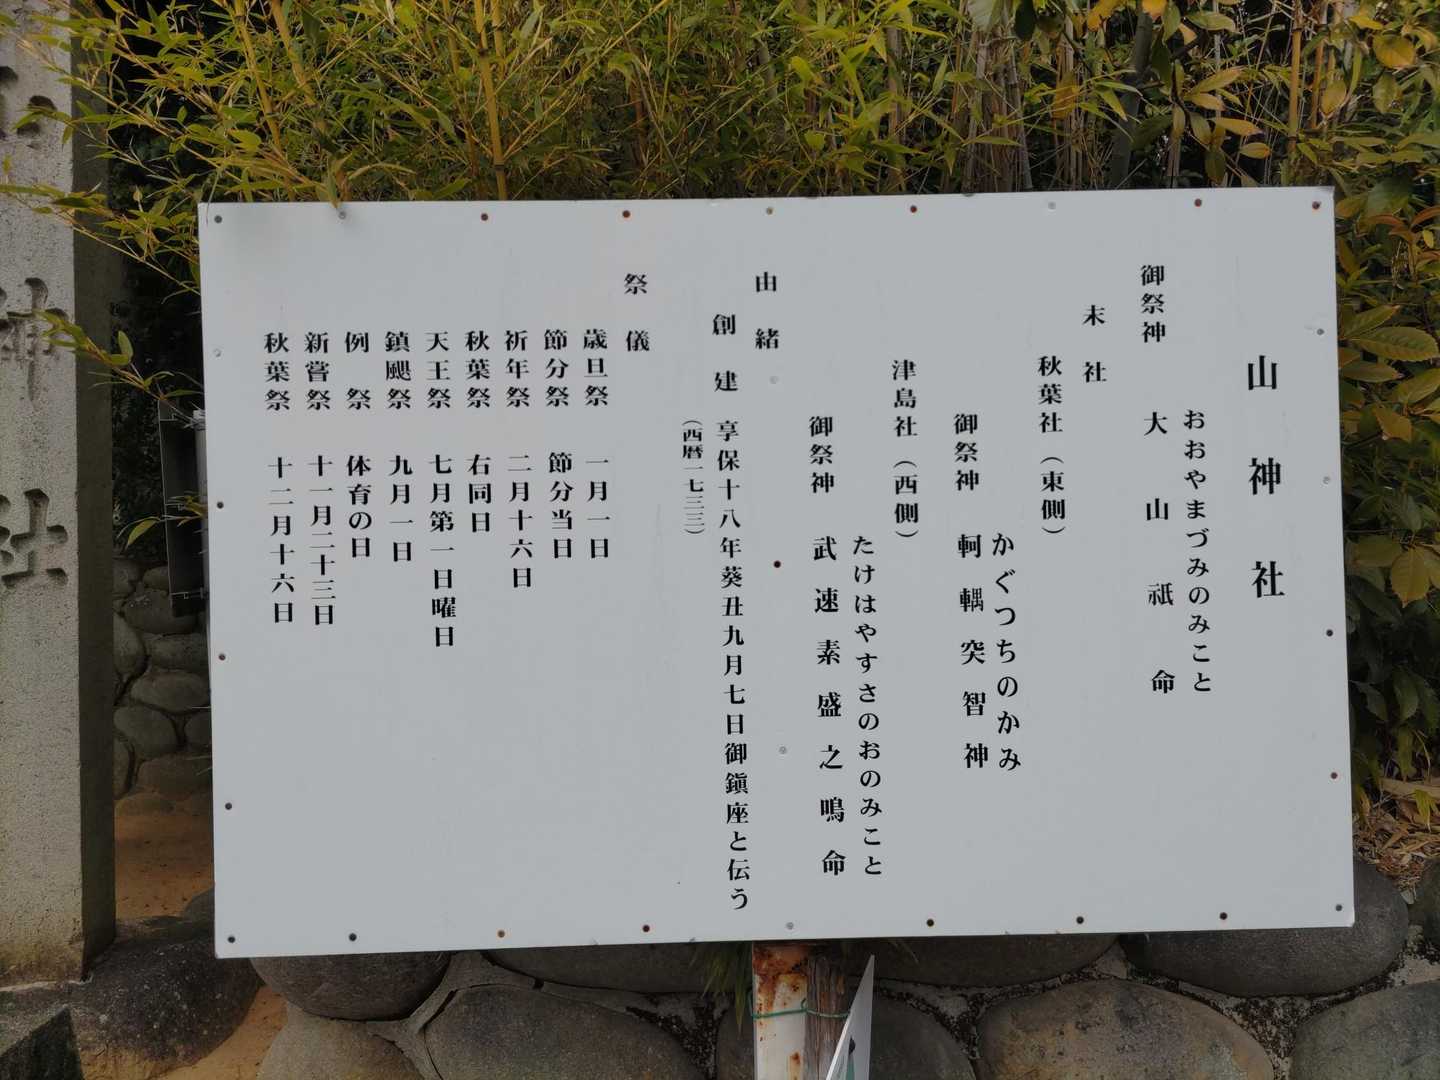 山神社
おおやまづみのみこと
御祭神 大山祇命
末社
秋葉社（東側）
かぐつちのかみ
御祭神 軻遇突智神
津島社（西側）
たけはやすさのおのみこと
御祭神 武速素盛之鳴命
由緒
創建 享保十八年葵丑九月七日御鎮座と伝う
（西暦一七三三）
祭儀
歳旦祭 一月一日
節分祭 節分当日
祈年祭 二月十六日
秋葉祭 右同日
天王祭 七月第一日曜日
鎮颶祭 九月一日
例祭 体育の日
新嘗祭 十一月二十三日
秋葉祭 十二月十六日
神社